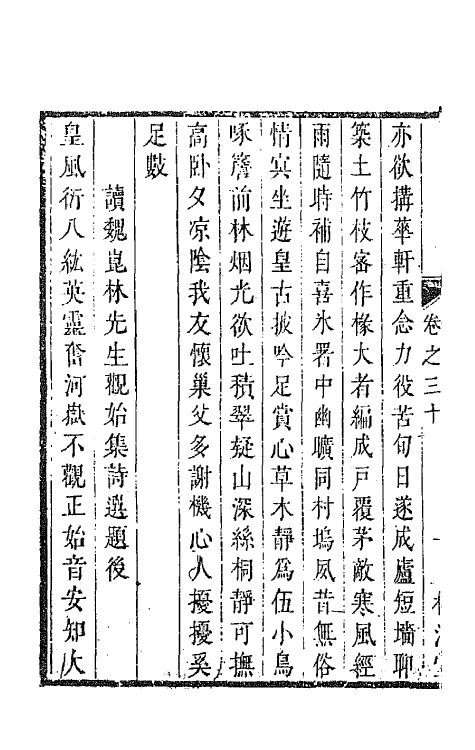 卷之三十
亦欲搆華軒重念力役苦旬日遂成廬短墻聊
築土竹枝密作椽大者編成戸覆茅敵寒風經
雨隨時補自喜氷署中幽曠同村塢夙昔無俗
情㝠坐遊皇古披吟足賞心草木靜爲伍小鳥
啄簷前林烟光欲吐積翠疑山深絲桐靜可撫
高卧夕凉陰我友懷巢父多謝機心人擾擾奚
足數
讀魏崑林先生觀始集詩選題後
皇風衍八紘英靈奮河嶽不觀正始音安知大